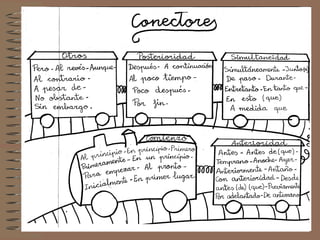 Conectores
Otros
Pero - Al revés - Aunque -
Al contrario -
A pesar de -
No obstante -
Sin embargo.
Posterioridad
Después - A continuación
Al poco tiempo -
Poco después -
Por fin.
Simultaneidad
Simultáneamente - Junto a
De paso - Durante -
Entretanto - En tanto que -
En esto (que)
A medida que
Comienzo
Al principio - En principio - Primero
Primeramente - En un principio -
Para empezar - Al pronto -
Inicialmente - En primer lugar
Anterioridad
Antes - Antes de (que) -
Temprano - Anoche - Ayer -
Anteriormente - Antaño -
Con anterioridad - Desde
antes (de) (que) - Previamente
Por adelantado - De antemano